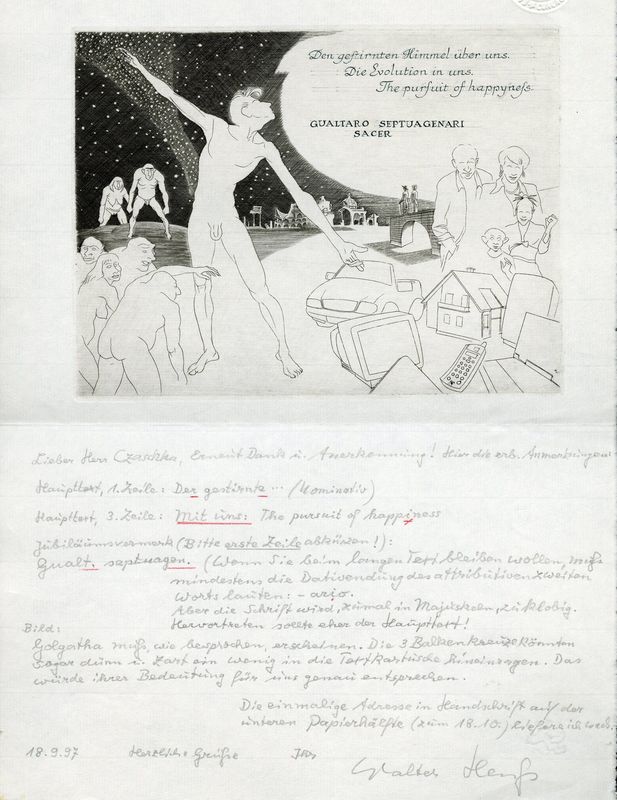 Den gestirnten Himmel über uns.
Die Evolution in uns.
The pursuit of happyness.
GUALTARO SEPTUAGENARI
SACER
Lieber Herr Czaschka, Erneut Dank u. Anerkennung! Hier die erb. Anmerkungen:
Haupttext, 1. Zeile: Der gestirnte ... (Nominativ)
Haupttext, 3. Zeile: Mit uns: The pursuit of happiness
Jubiläumsvermerk (Bitte erste Zeile abkürzen!):
Gualt. septuagen. (Wenn Sie beim langen Text bleiben wollen, muß
mindestens die Dativendung des attributiven zweiten
Worts lauten: -ario.
Aber die Schrift wird, zumal in Majuskeln, zu klobig.
Hervortreten sollte eher der Haupttext!
Bild:
Golgotha muß, wie besprochen, erscheinen. Die 3 Balkenkreuze könnten
sogar dünn u. zart ein wenig in die Textkartusche hineinragen. Das
würde ihrer Bedeutung für uns genau entsprechen.
Die einmalige Adresse in Handschrift auf der
unteren Papierhälfte (zum 18.10.) liefere ich
18.9.97 Herzliche Grüße Ihr
Walter